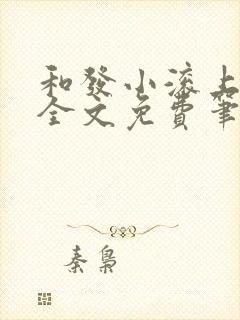 和發小滚上
全文免費筆
秦梟